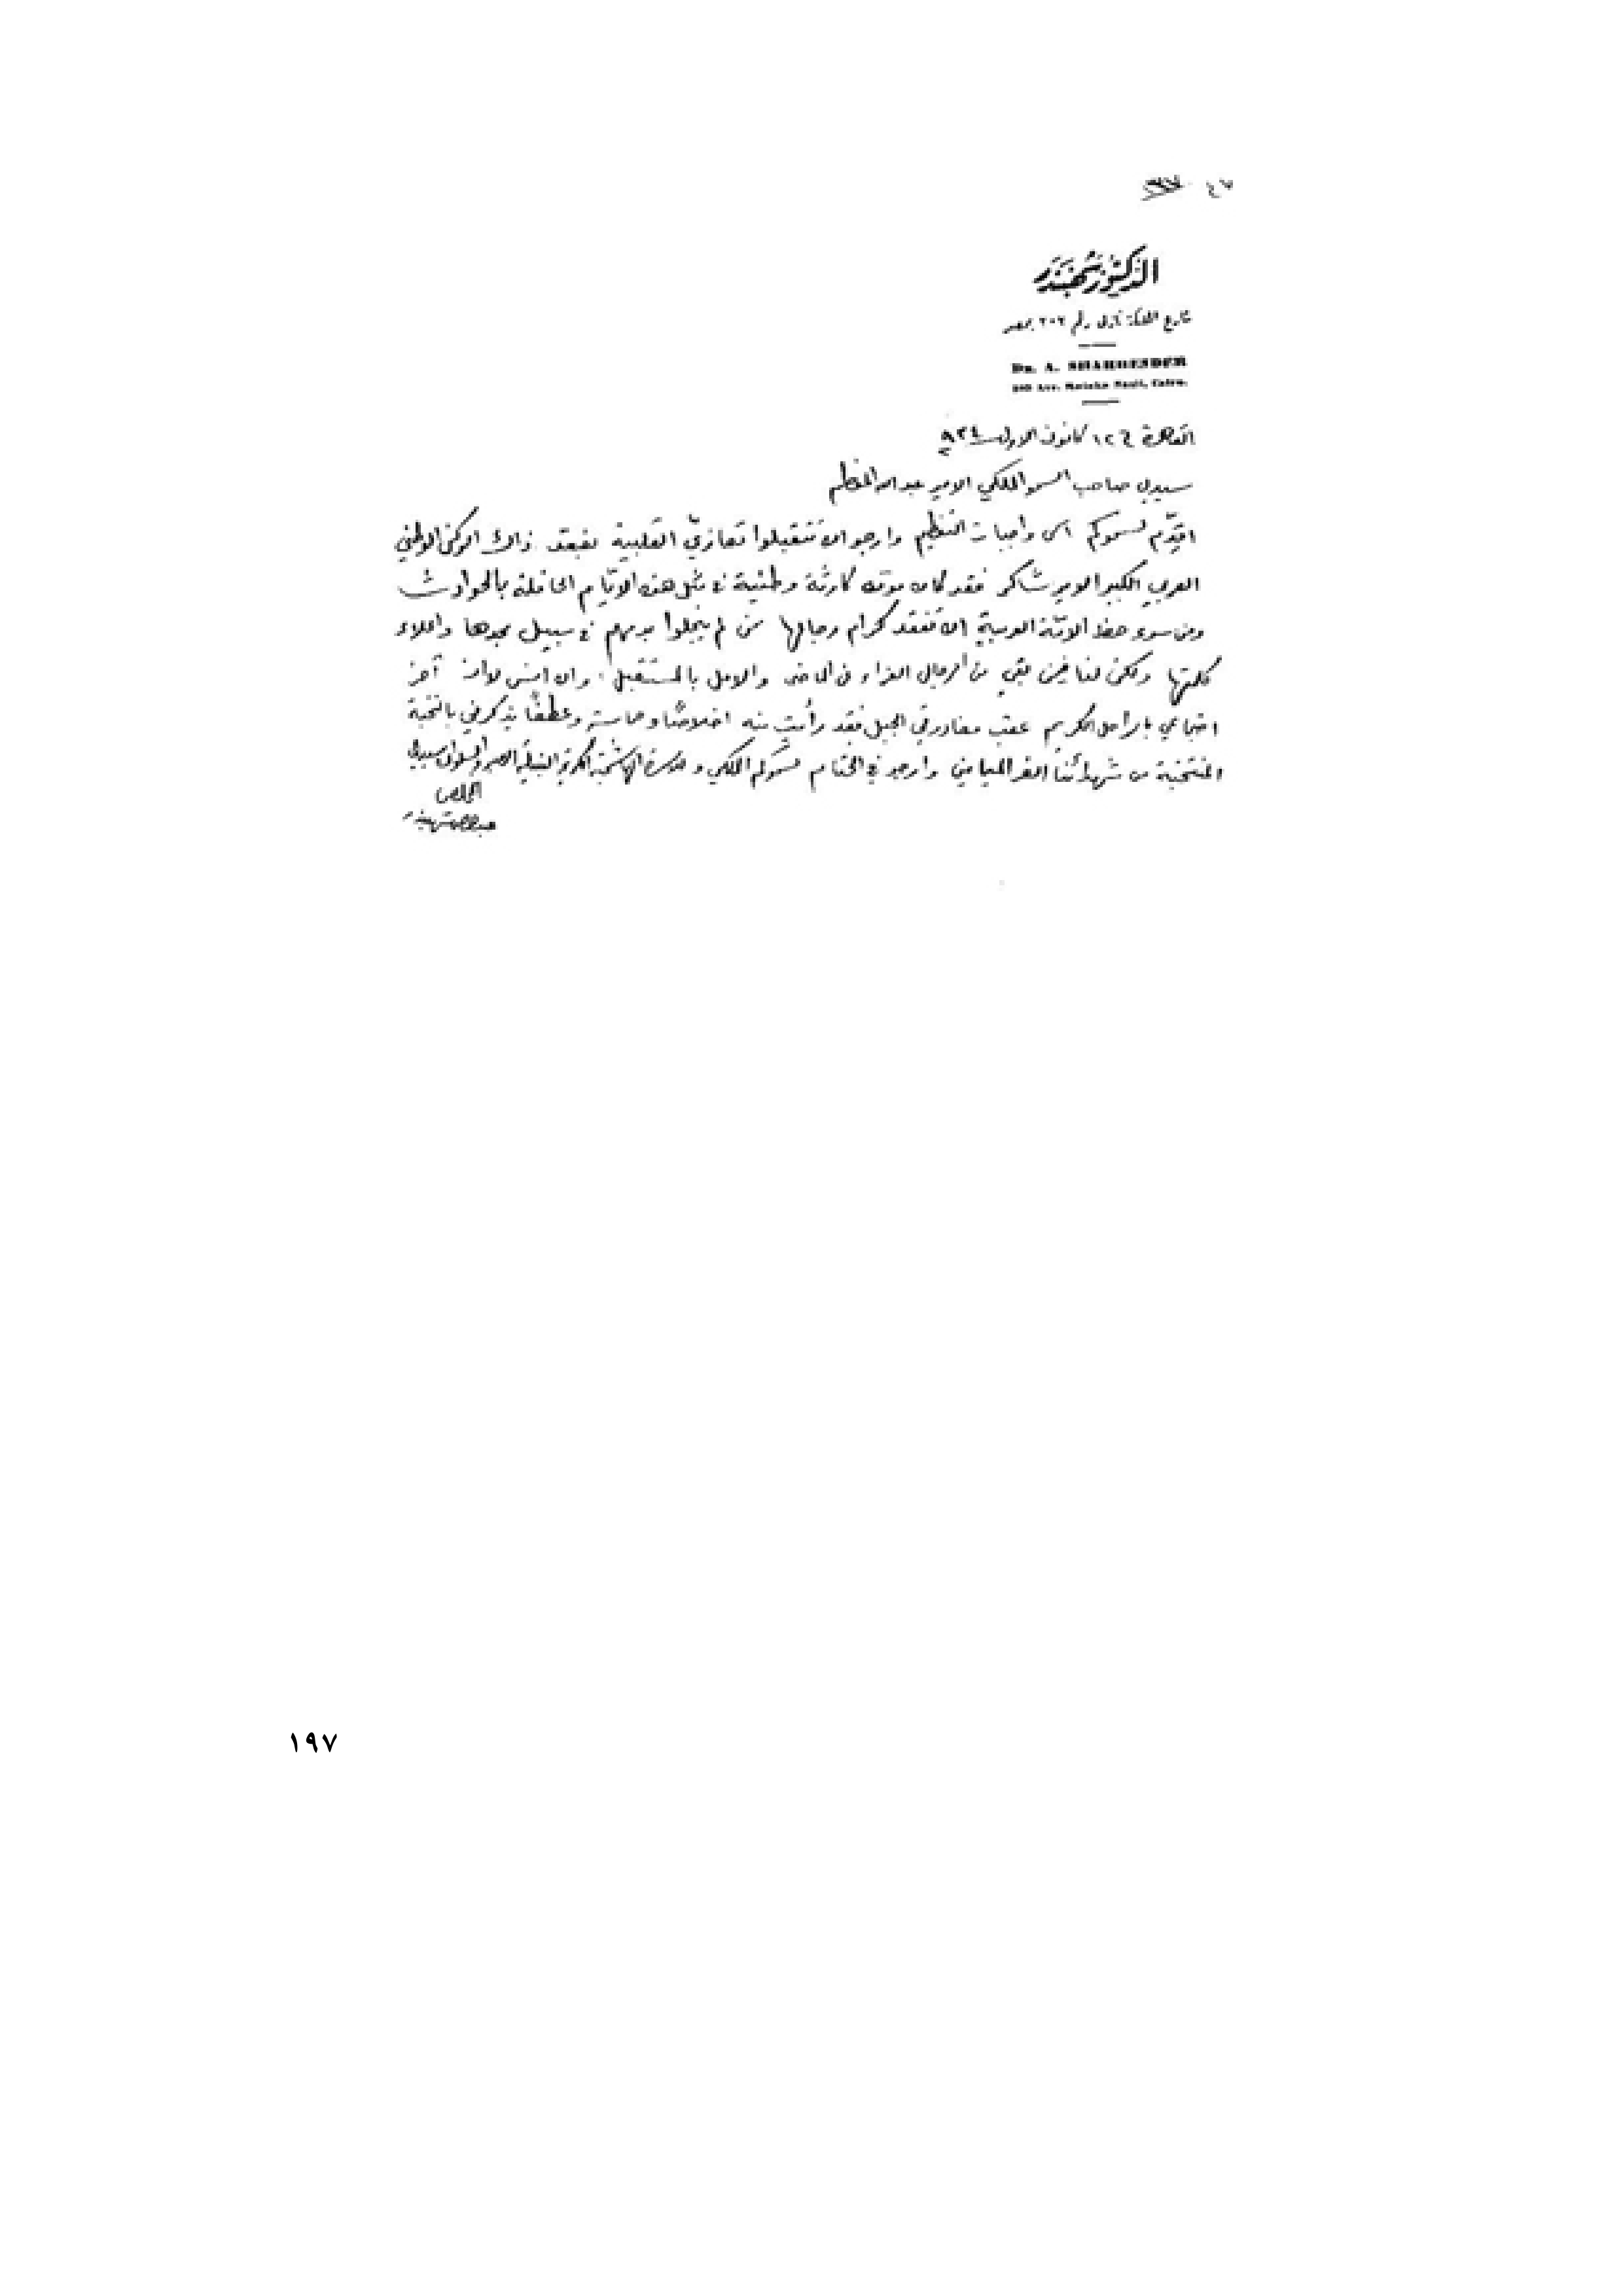 الدكتور شهبندر
شارع الملكة نازلي رقم ٢٠٢ بمصر
DR. A. SHAHBENDER
Ave. Malaka Nazli, Cairo.
القاهرة في ١٢ كانون الاول سنة ٩٣٤
سيدي صاحب السمو الملكي الامير عبد الله المعظم
اقدّم لسموكم اسمى واجبات التعظيم وارجو ان تتقبلوا تعازيّ القلبية بفقد ذاك الركن الوطني
العربي الكبير الامير شاكر فقد كان موته كارثة وطنية في مثل هذه الايّام الحافلة بالحوادث
ومن سوء حظ الامّة العربيّة ان تفقد كرام رجالها من لم يبخلوا بدمهم في سبيل مجدها واعلاء
كلمتها ولكن لنا فيمن بقي من الرجال العزاء عن الماضي والامل بالمستقبل، وان انس لا انس آخر
اجتماعي بالراحل الكريم عقب مغادرتي الجبل فقد رأيت منه اخلاصًا وحماسة وعطفًا يذكرني بالنخبة
المنتخبة من شهدائنا الغر الميامين وارجو في الختام لسموكم الملكي و الهاشمية الكريمة النبيلة الصبر والسلوان سيدي
المخلص
عبد الرحمن شهبندر
١٩٧